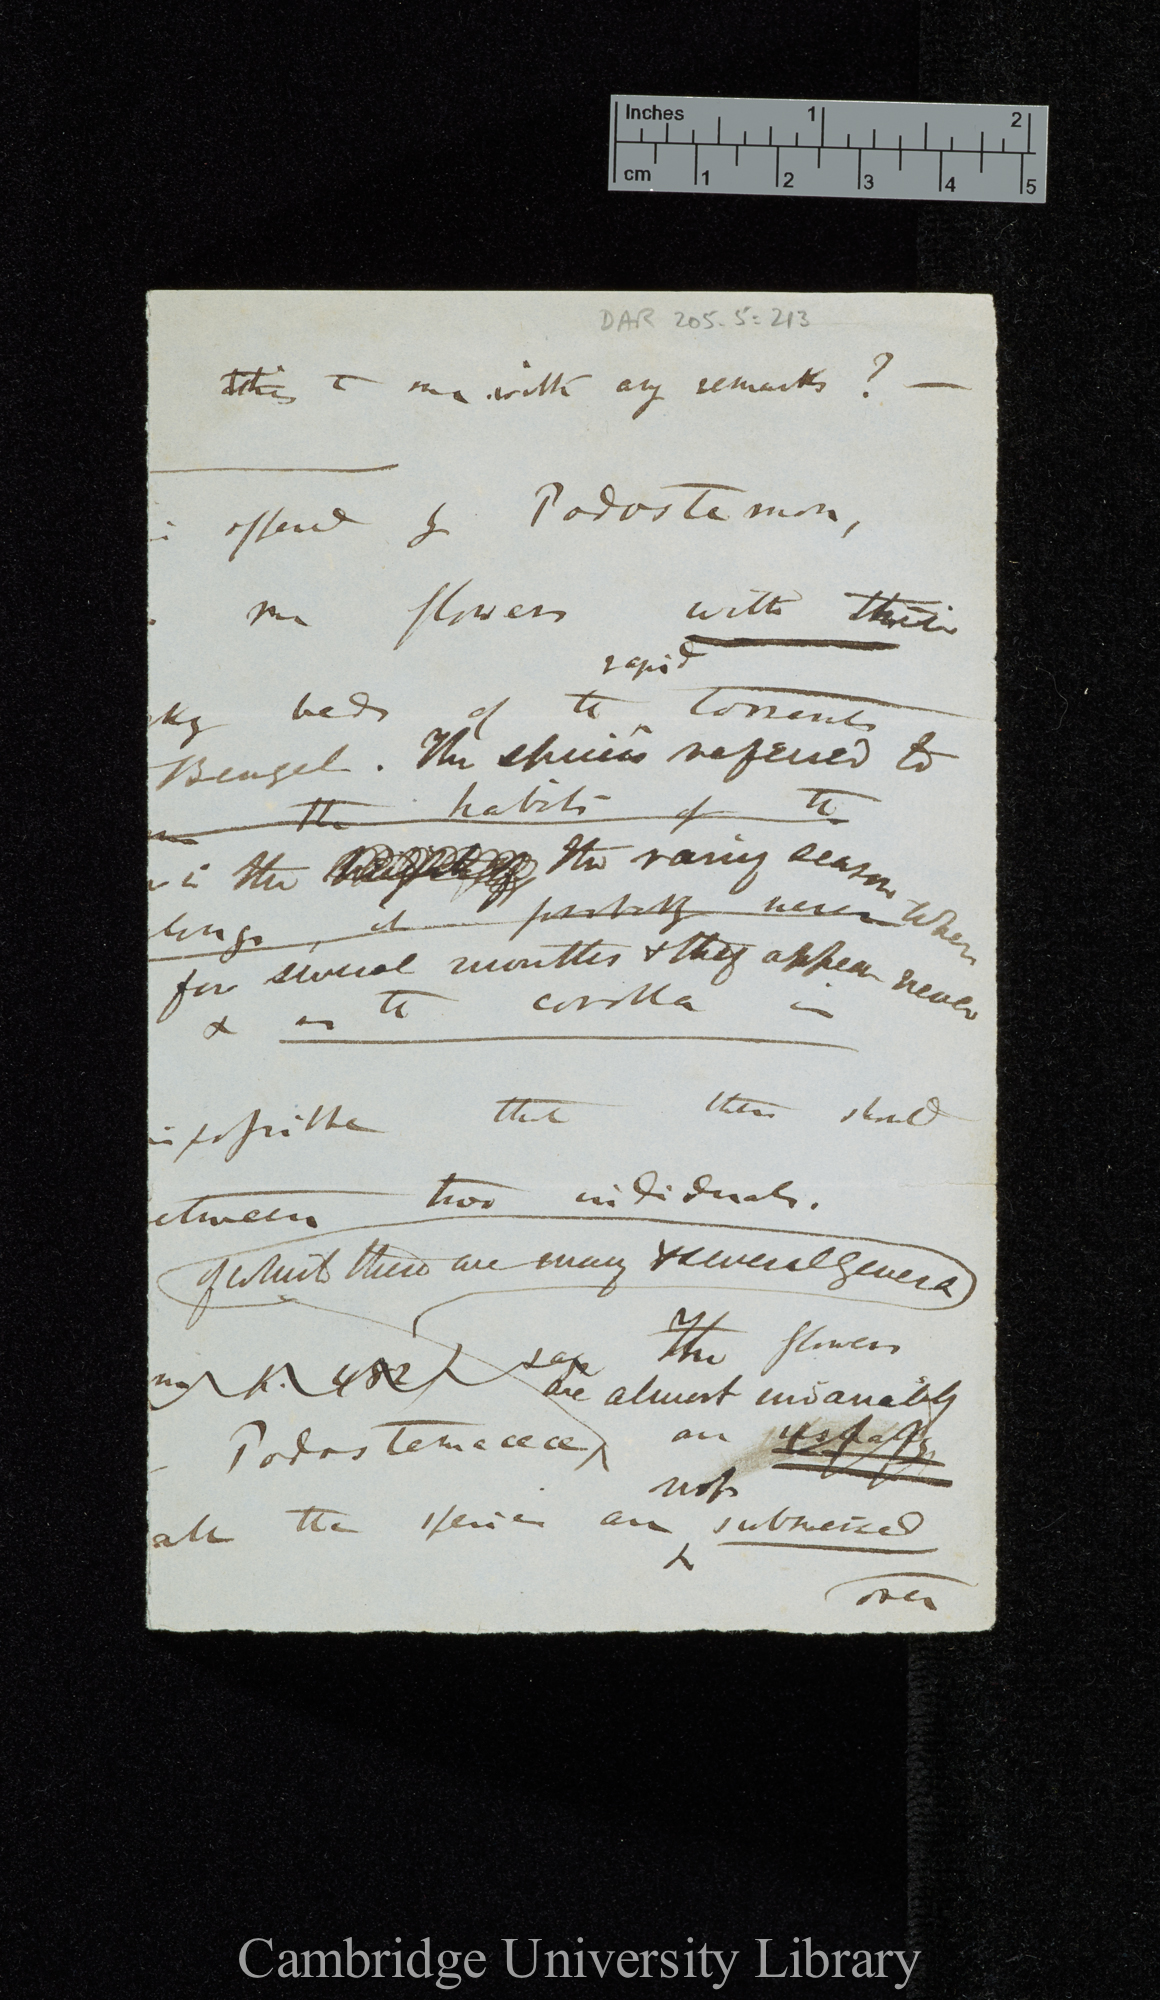 Inches 1 2
cm 1 2 3 4 5
DAR 205.5:213
this to me with any remarks? —
is offered by Podostemon,
me flowers with their
rapid
ky beds of the torrents
Bengal. The species referred to
the habits of the
is the the rainy season when
longs, it probably never
for several months & they appear never
& as the corolla is
impossible that there should
etween two individuals.
of which there are many & several genera
p. 482 says The flowers
are almost invariably
Podostemaceæ, are usually
not
all the species are submersed
over
Cambridge University Library